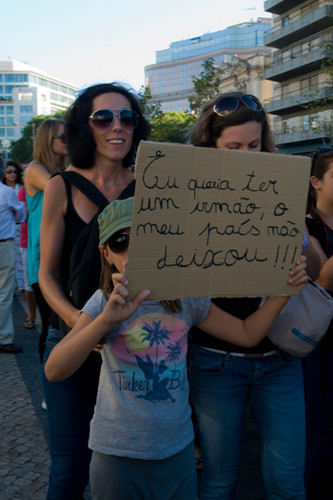 Eu queria ter
um irmão, o
meu país não
deixou!!!
Tinker Bell